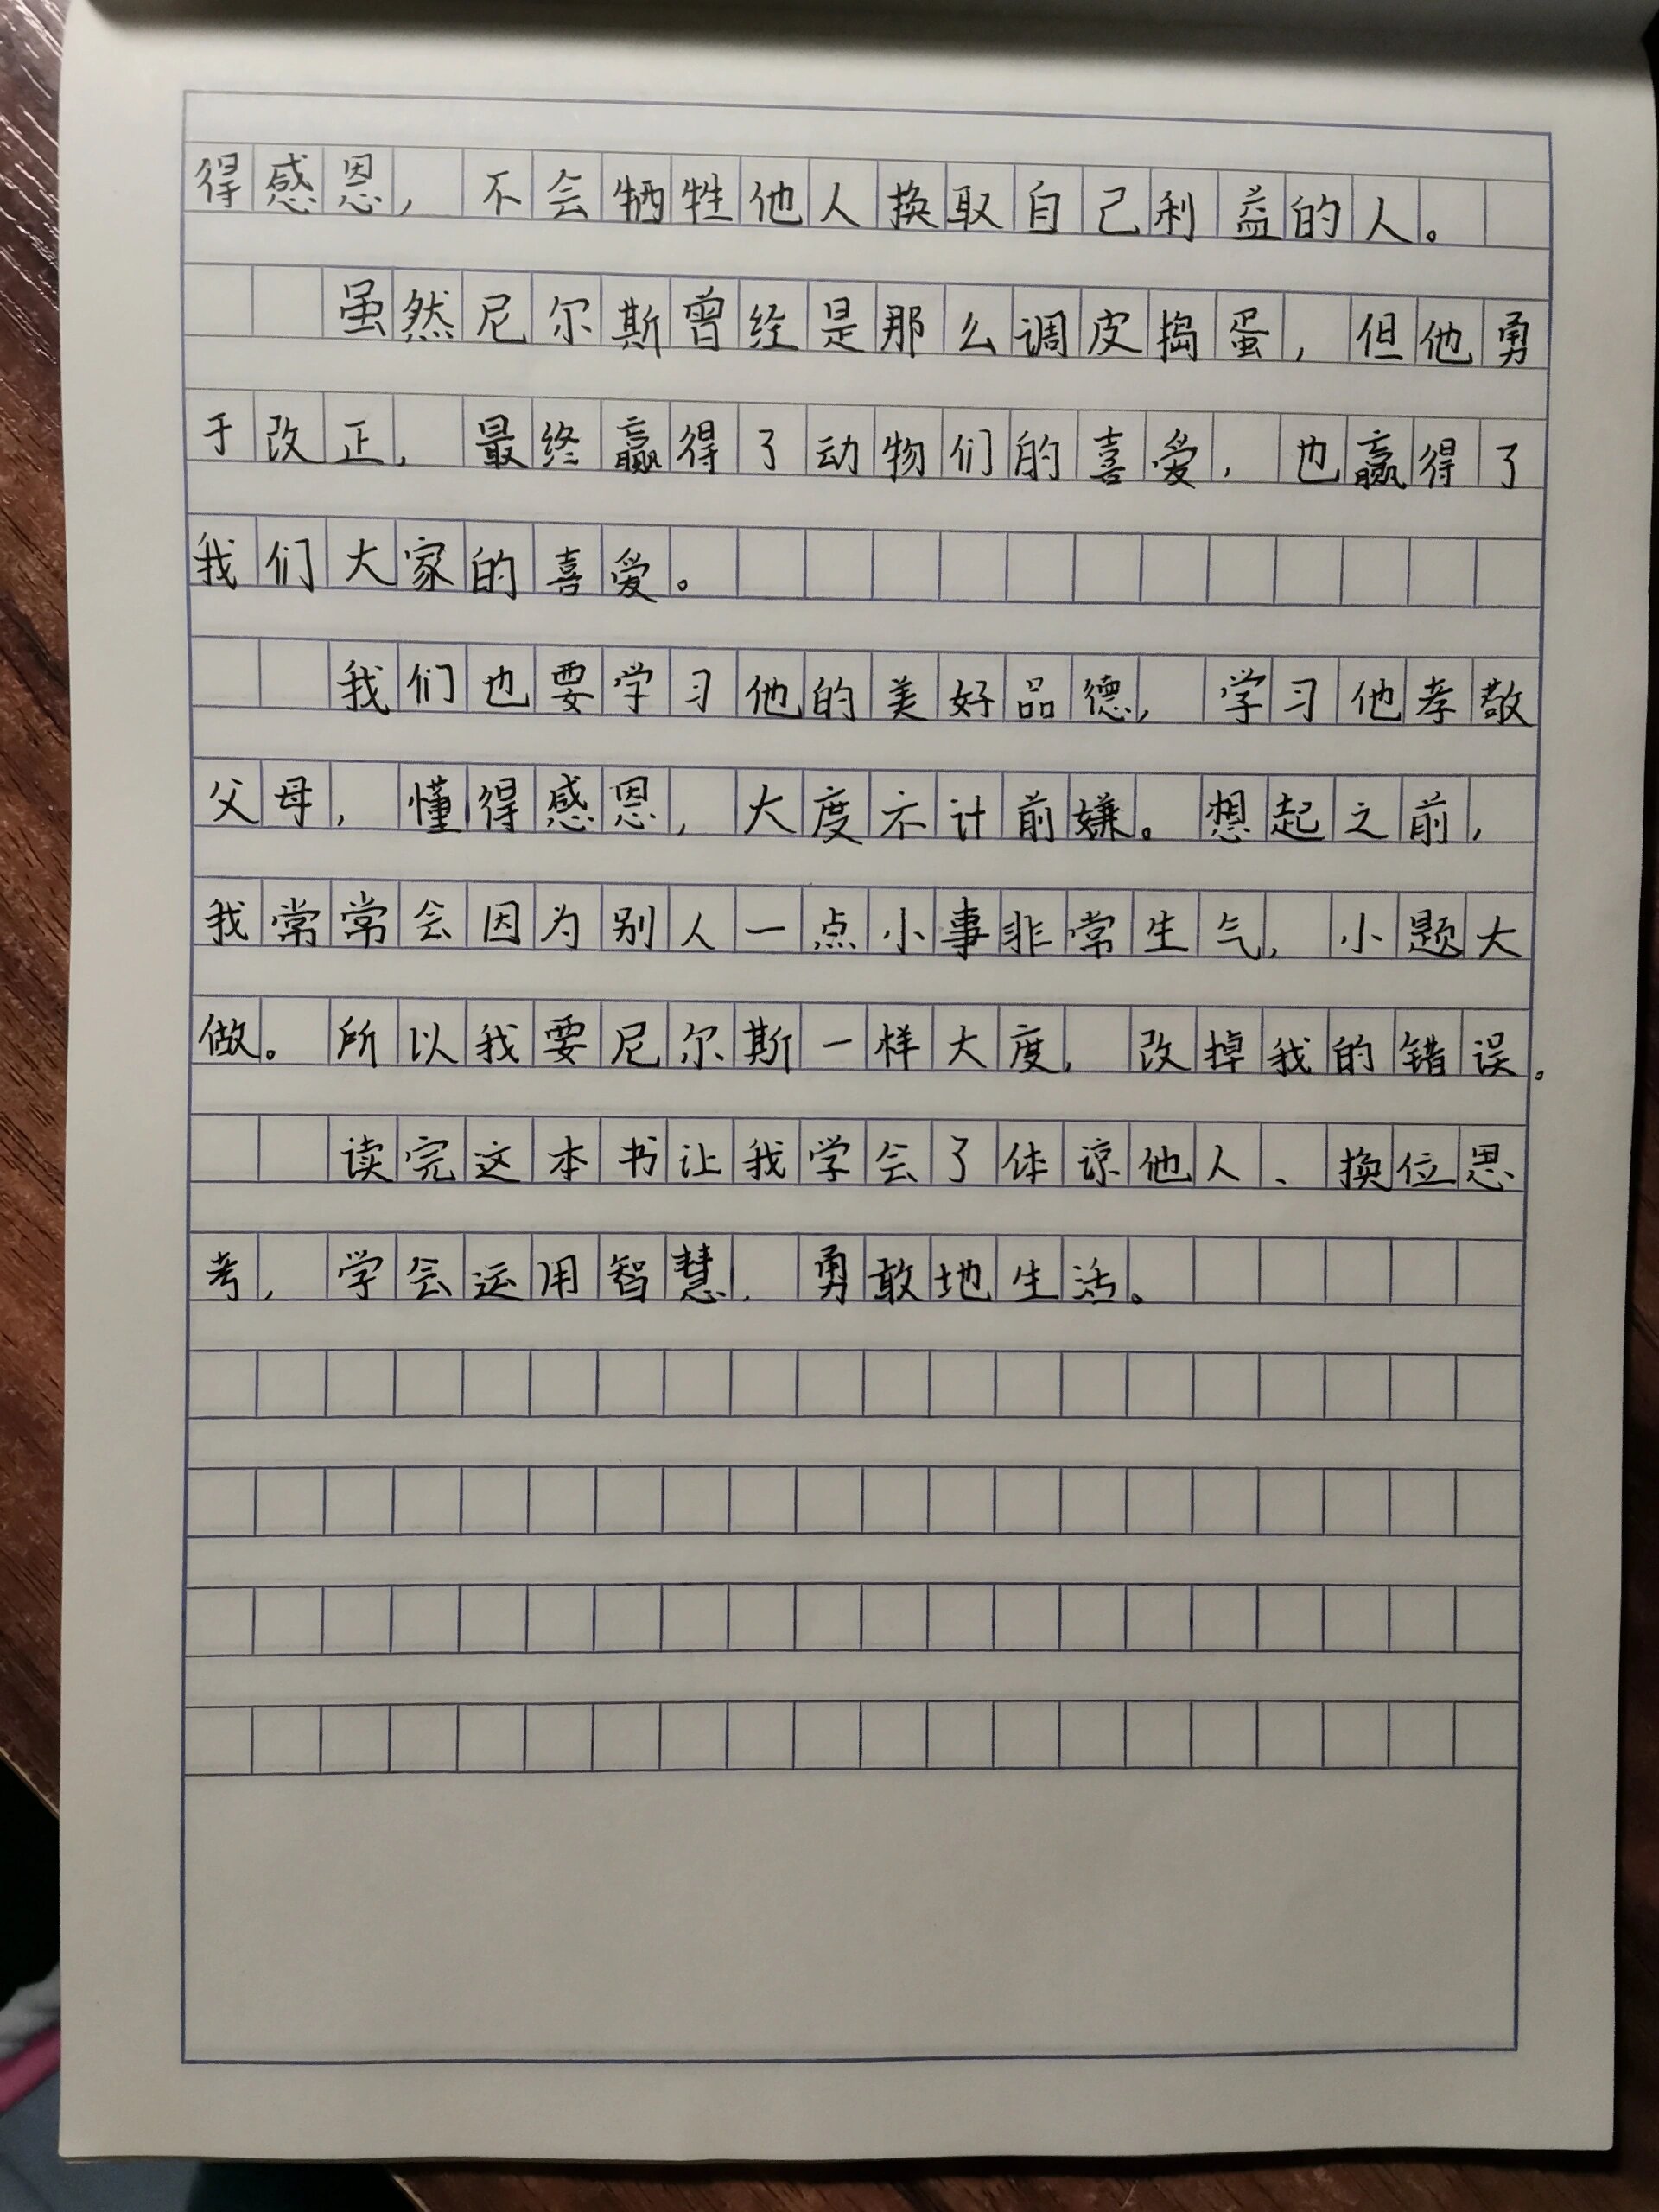 得感恩，不会牺牲他人换取自己利益的人。
虽然尼尔斯曾经是那么调皮捣蛋，但他勇
于改正，最终赢得了动物们的喜爱，也赢得了
我们大家的喜爱。
我们也要学习他的美好品德，学习他孝敬
父母，懂得感恩，大度不计前嫌。想起之前，
我常常会因为别人一点小事非常生气，小题大
做。所以我要尼尔斯一样大度，改掉我的错误。
读完这本书让我学会了体谅他人、换位思
考，学会运用智慧，勇敢地生活。